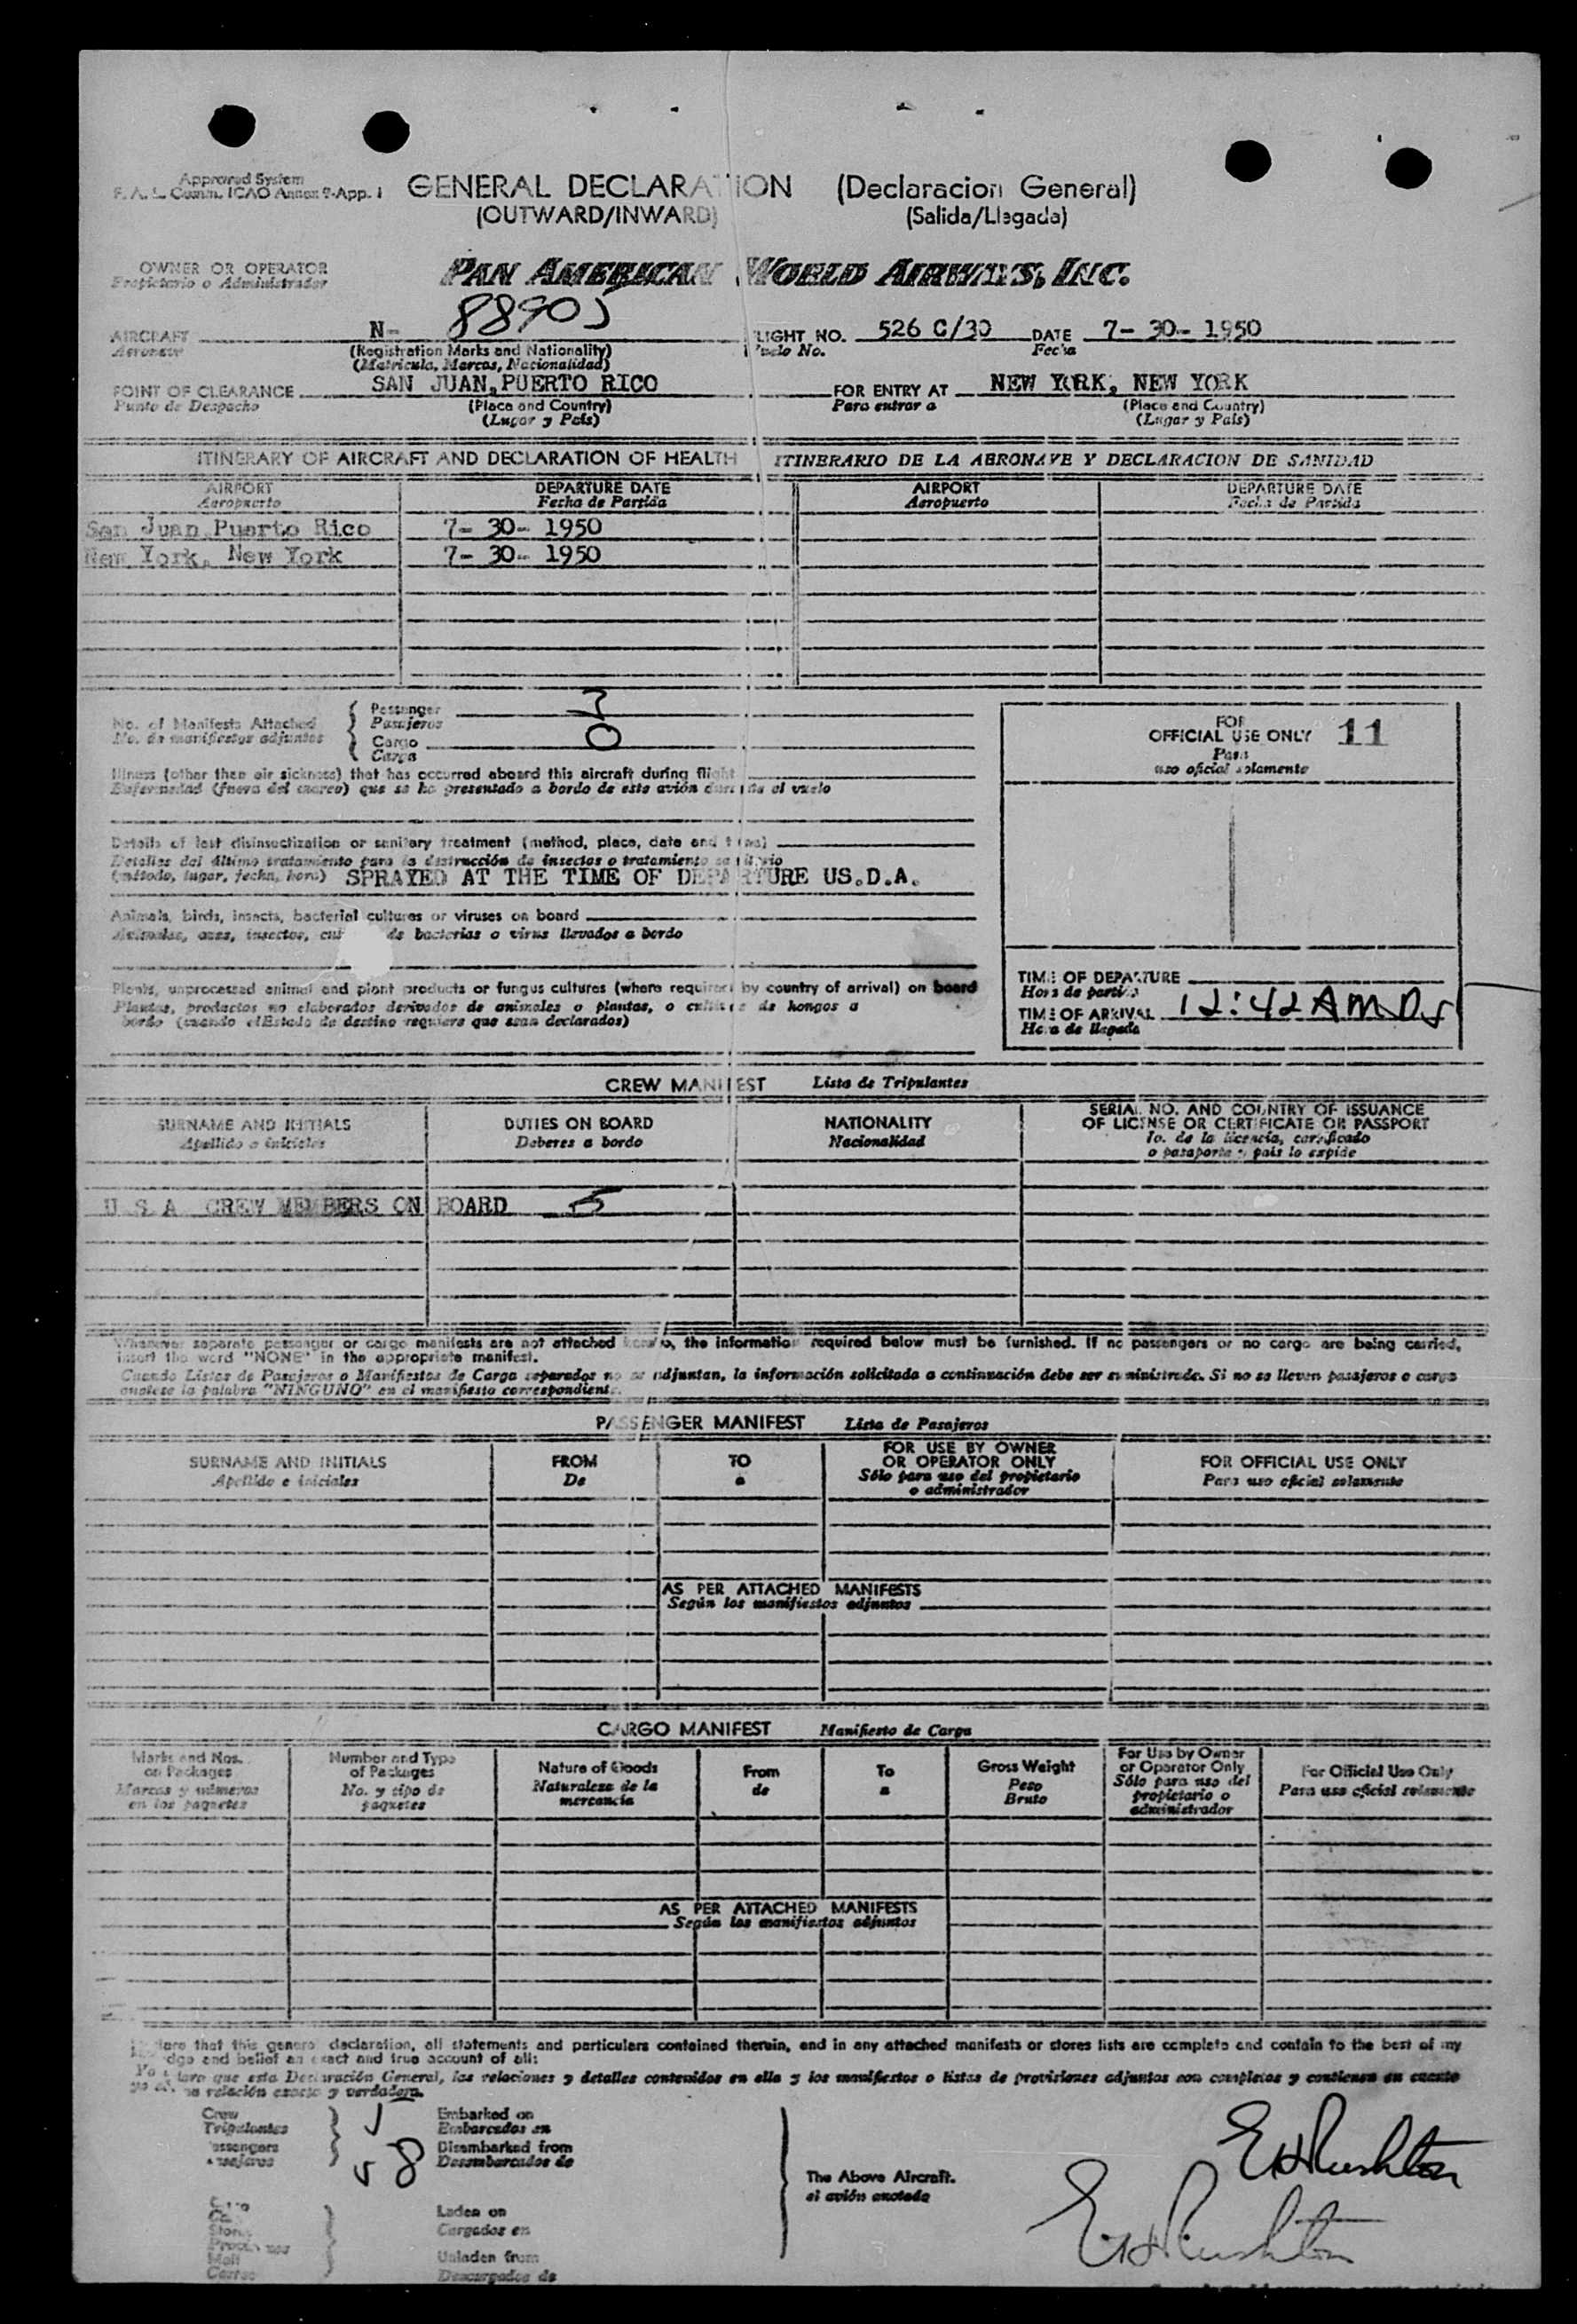 Approved System
F. A. L. Comm. ICAO Annex 9-App. 1
GENERAL DECLARATION (Declaracion General)
(OUTWARD/INWARD) (Salida/Llegada)
OWNER OR OPERATOR
Propietario o Administrador
PAN AMERICAN WORLD AIRWAYS, INC.
AIRCRAFT N- 88905 FLIGHT NO. 526 C/30 DATE 7- 30- 1950
Aeronave (Registration Marks and Nationality) Vuelo No. Fecha
(Matricula, Marcas, Nacionalidad)
POINT OF CLEARANCE SAN JUAN, PUERTO RICO FOR ENTRY AT NEW YORK, NEW YORK
Punto de Despacho (Place and Country) Para entrar a (Place and Country)
(Lugar y País) (Lugar y País)
ITINERARY OF AIRCRAFT AND DECLARATION OF HEALTH ITINERARIO DE LA AERONAVE Y DECLARACION DE SANIDAD
AIRPORT DEPARTURE DATE AIRPORT DEPARTURE DATE
Aeropuerto Fecha de Partida Aeropuerto Fecha de Partida
San Juan, Puerto Rico 7- 30- 1950
New York, New York 7- 30- 1950
No. of Manifests Attached
No. de manifiestos adjuntos
Passenger 3
Pasajeros
Cargo 0
Carga
Illness (other than air sickness) that has occurred aboard this aircraft during flight
Enfermedad (fuera del mareo) que se ha presentado a bordo de este avión durante el vuelo
Details of last disinsectization or sanitary treatment (method, place, date and time)
Detalles del último tratamiento para la destrucción de insectos o tratamiento sanitario
(método, lugar, fecha, hora) SPRAYED AT THE TIME OF DEPARTURE US.D.A.
Animals, birds, insects, bacterial cultures or viruses on board
Animales, aves, insectos, de bacterias o virus llevados a bordo
Plants, unprocessed animal and plant products or fungus cultures (where required by country of arrival) on board
Plantas, productos no elaborados derivados de animales o plantas, o cultivos de hongos a
bordo (cuando el Estado de destino requiere que sean declarados)
FOR
OFFICIAL USE ONLY 11
Para
uso oficial solamente
TIME OF DEPARTURE
Hora de partida
TIME OF ARRIVAL 12:42 AM DS
Hora de llegada
CREW MANIFEST Lista de Tripulantes
SURNAME AND INITIALS DUTIES ON BOARD NATIONALITY SERIAL NO. AND COUNTRY OF ISSUANCE
OF LICENSE OR CERTIFICATE OR PASSPORT
Apellido e iniciales Deberes a bordo Nacionalidad No. de la licencia, certificado
o pasaporte y país lo expide
U S A CREW MEMBERS ON BOARD 5
Whenever separate passenger or cargo manifests are not attached hereto, the information required below must be furnished. If no passengers or no cargo are being carried,
insert the word "NONE" in the appropriate manifest.
Cuando Listas de Pasajeros o Manifiestos de Carga separados no se adjuntan, la información solicitada a continuación debe ser suministrada. Si no se lleven pasajeros o carga
anótese la palabra "NINGUNO" en el manifiesto correspondiente.
PASSENGER MANIFEST Lista de Pasajeros
SURNAME AND INITIALS FROM TO FOR USE BY OWNER
OR OPERATOR ONLY FOR OFFICIAL USE ONLY
Apellido e iniciales De a Sólo para uso del propietario
o administrador Para uso oficial solamente
AS PER ATTACHED MANIFESTS
Según los manifiestos adjuntos
CARGO MANIFEST Manifiesto de Carga
Marks and Nos.
on Packages
Marcas y números
en los paquetes
Number and Type
of Packages
No. y tipo de
paquetes
Nature of Goods
Naturaleza de la
mercancía
From
de
To
a
Gross Weight
Peso
Bruto
For Use by Owner
or Operator Only
Sólo para uso del
propietario o
administrador
For Official Use Only
Para uso oficial solamente
AS PER ATTACHED MANIFESTS
Según los manifiestos adjuntos
that this general declaration, all statements and particulars contained therein, and in any attached manifests or stores lists are complete and contain to the best of my
and belief an exact and true account of all:
que esta Declaración General, las relaciones y detalles contenidos en ella y los manifiestos o listas de provisiones adjuntos son completos y contienen en cuanto
relación exacta y verdadera.
Crew 5 Embarked on
Tripulantes Embarcados en
Passengers 58 Disembarked from
Pasajeros Desembarcados de
The Above Aircraft.
el avión anotado
Laden on
Cargados en
Stores
Mail Unladen from
Descargados de
E H Rushton
E H Rushton